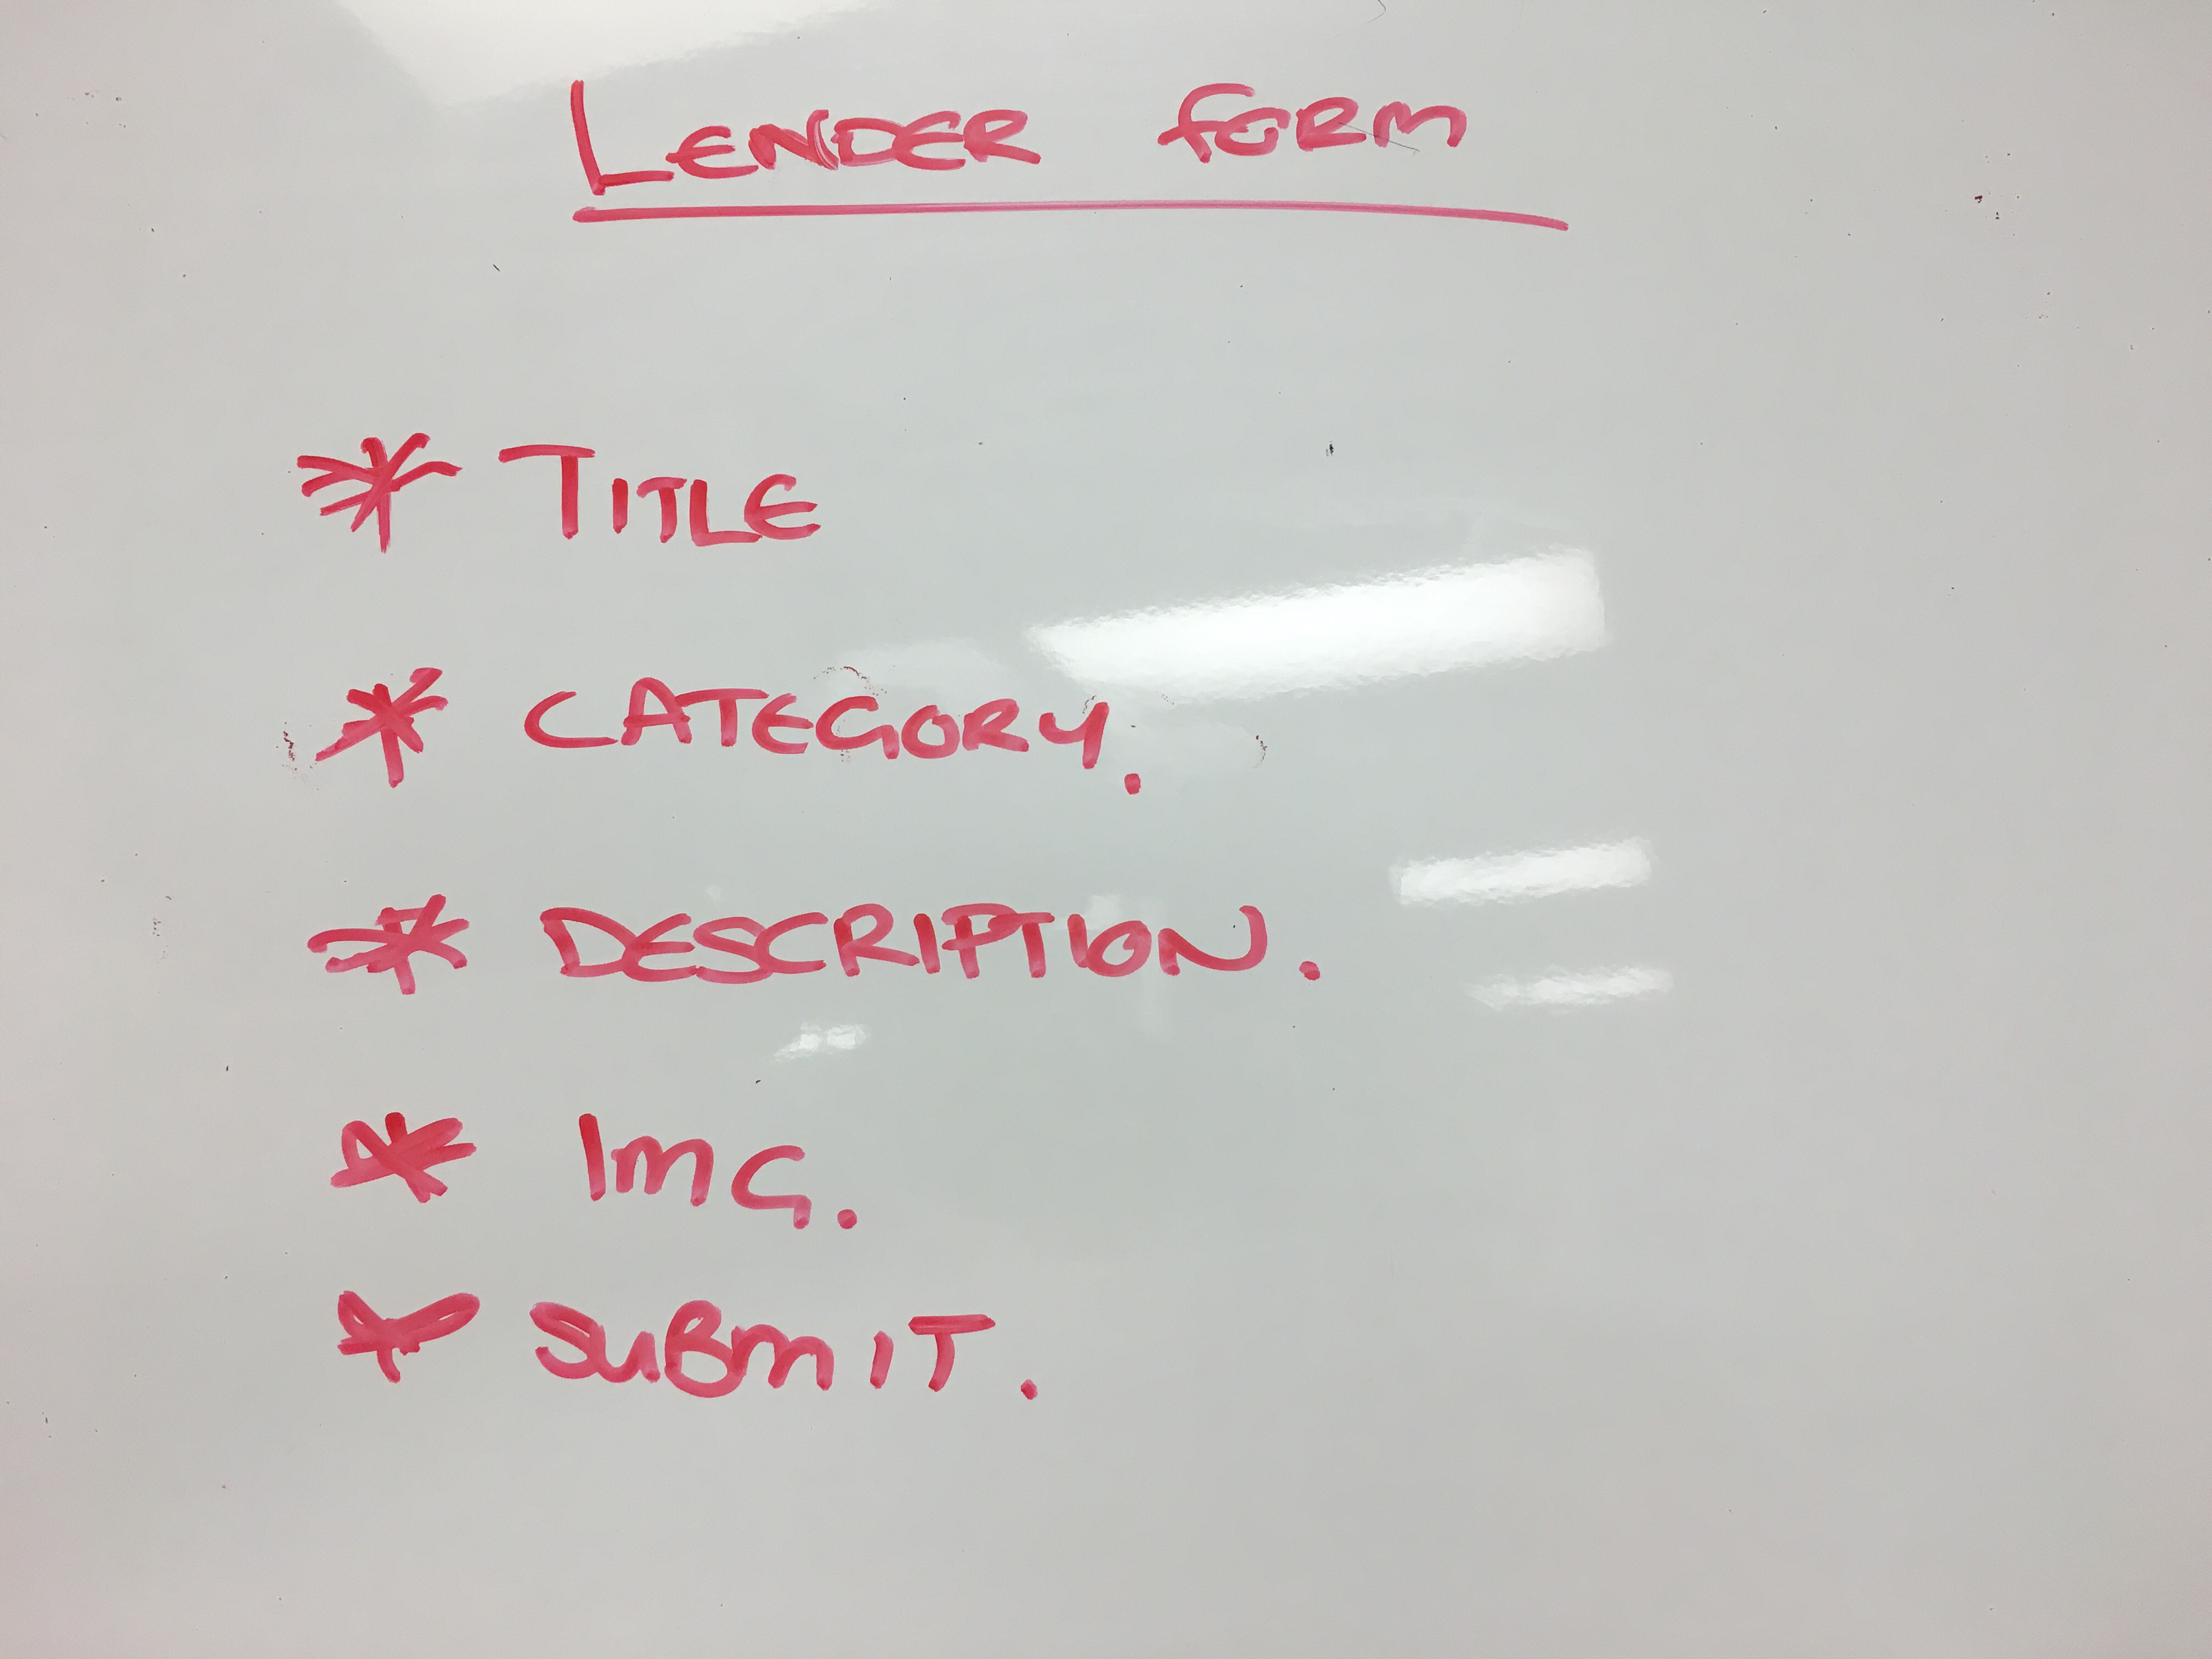 LENDER FORM
* TITLE
* CATEGORY.
* DESCRIPTION.
* IMG.
* SUBMIT.